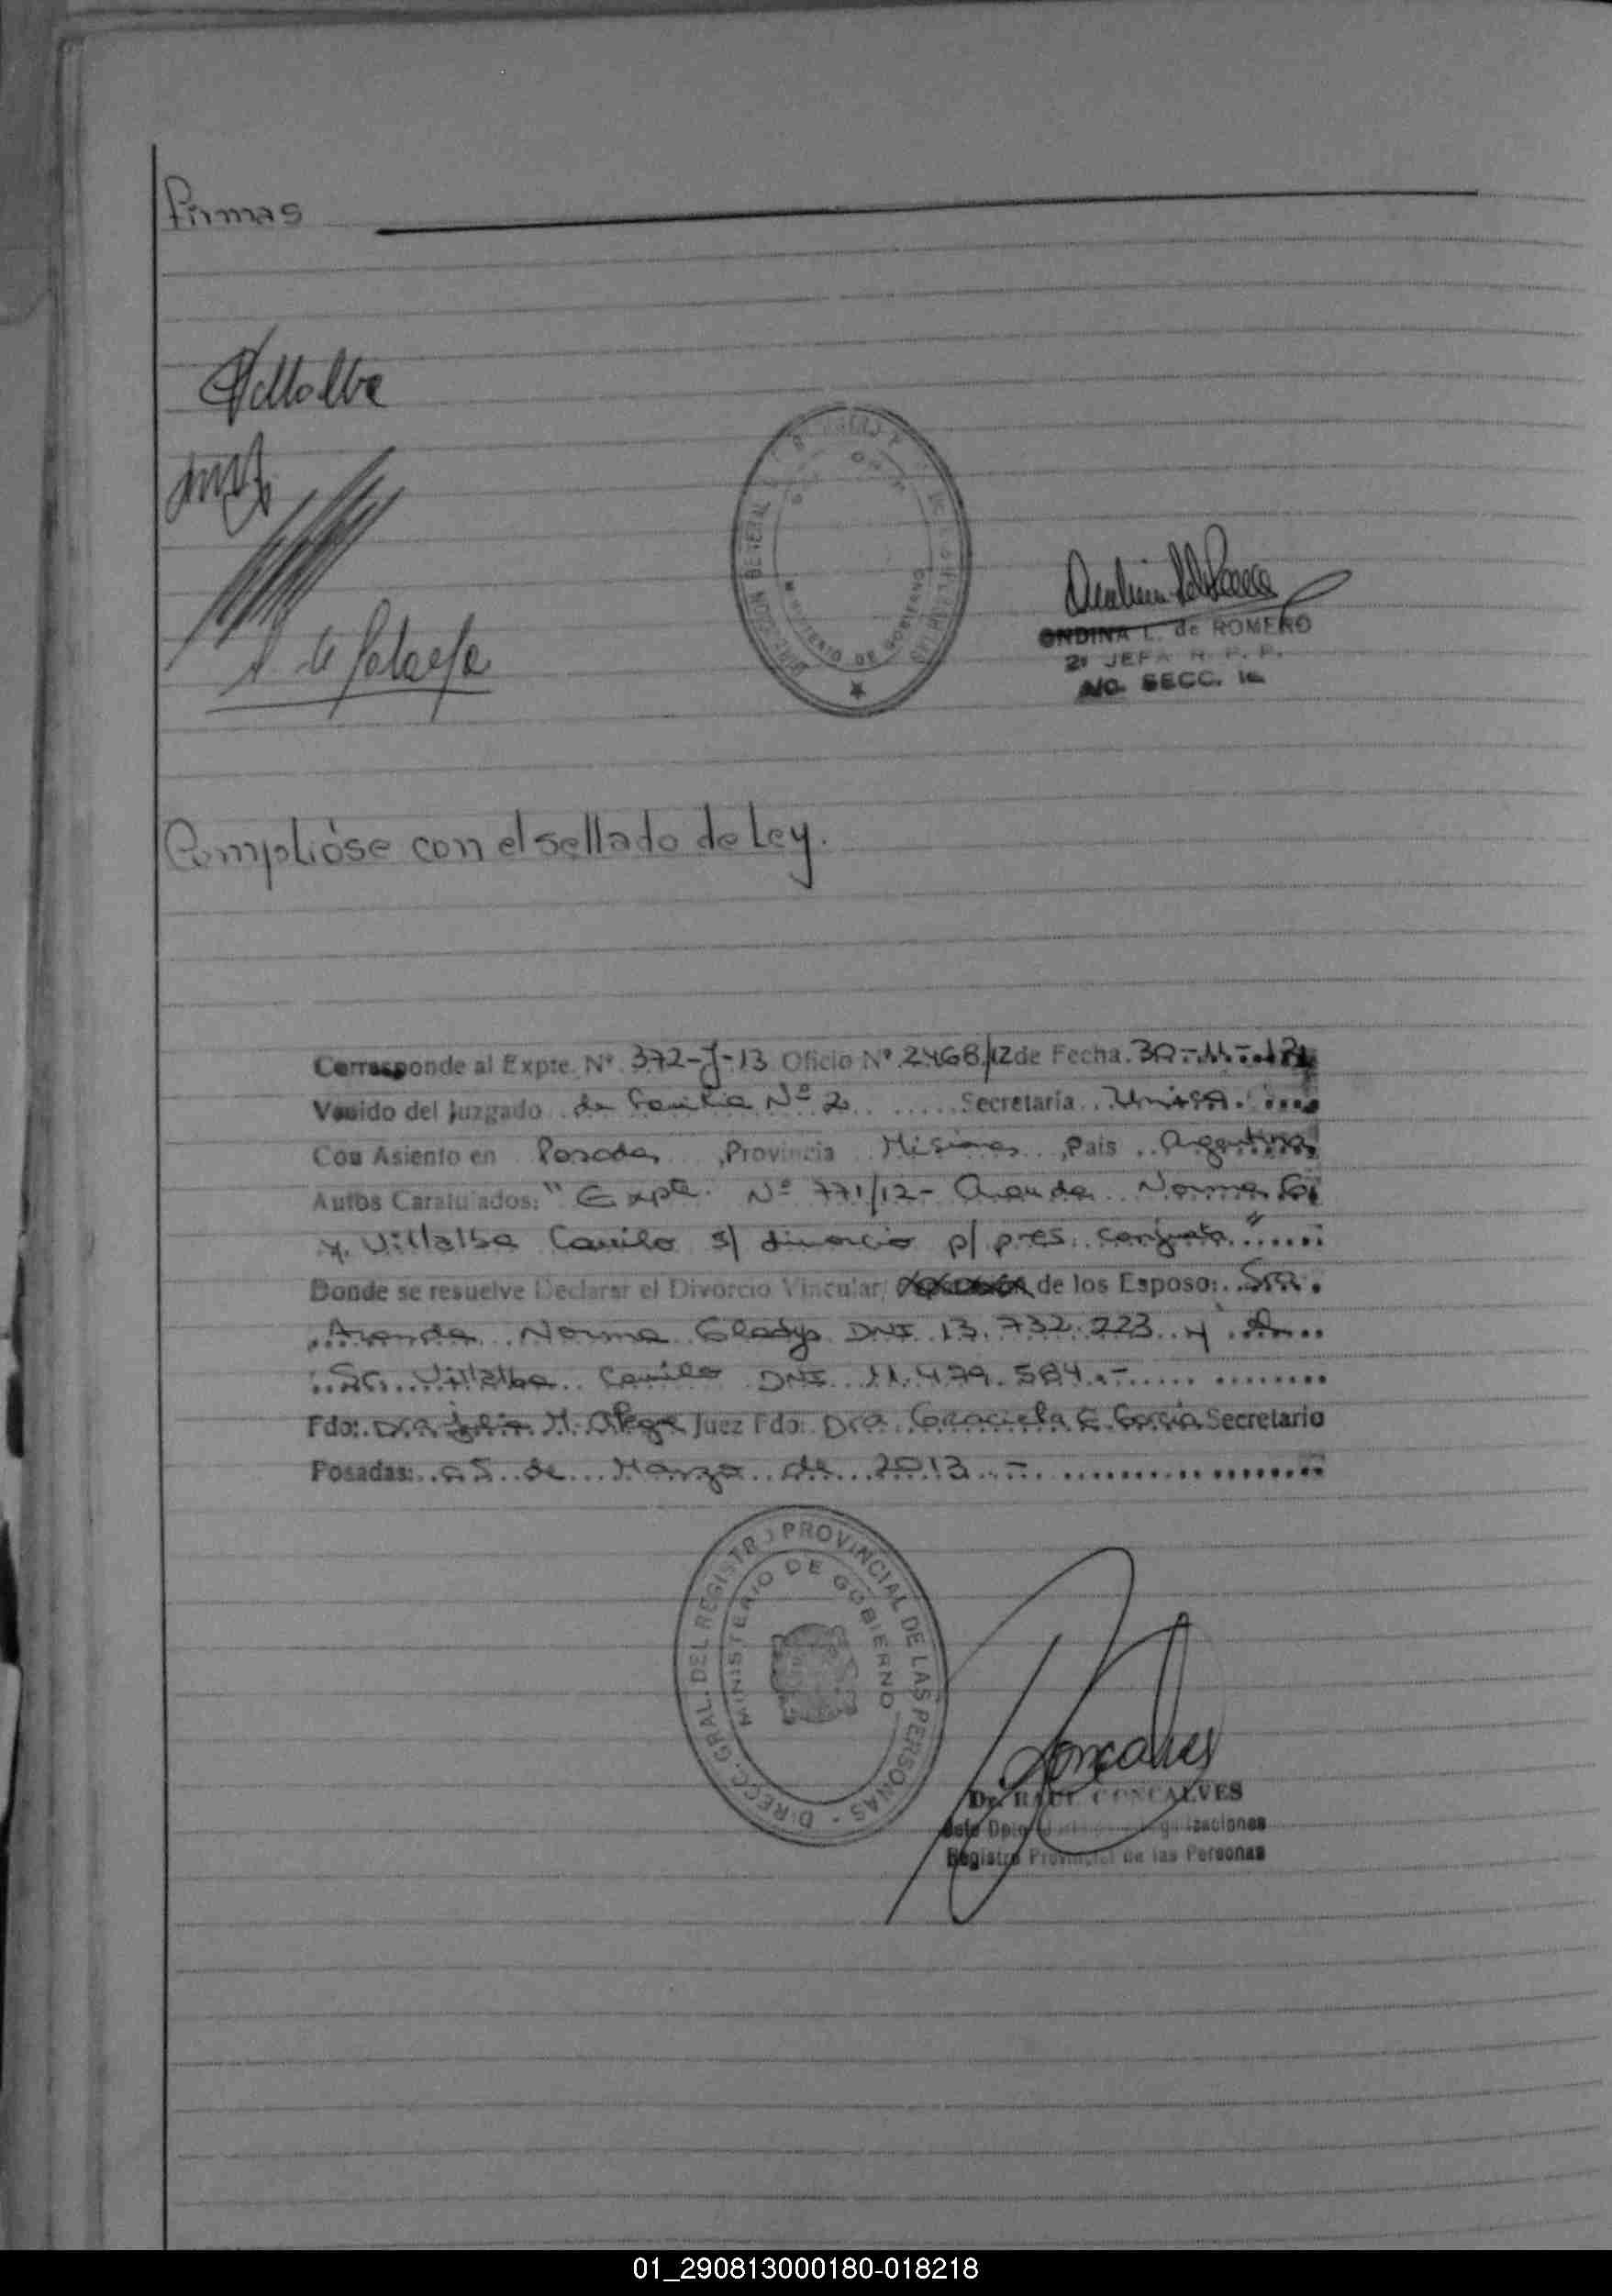 Firmas
Villalba
Cumplióse con el sellado de Ley.
ONDINA L. de ROMERO
2ª JEFA R. P. P.
A/C. SECC. 1ª
MINISTERIO DE GOBIERNO
Corresponde al Expte. Nº 372-J-13 Oficio Nº 2468/12 de Fecha 30-11-12
Venido del Juzgado de Familia Nº 2 Secretaría Unica
Con Asiento en Posadas, Provincia Misiones, País Argentina
Autos Caratulados: "Expte. Nº 771/12- Aranda Norma G.
y Villalba Camilo s/ divorcio p/ pres. conjunta"
Donde se resuelve Declarar el Divorcio Vincular, de los Esposo: Sra.
Aranda Norma Gladys DNI 13.732.223 y
Sr. Villalba Camilo DNI 11.479.584.-
Fdo: Dra. Julia M. Alegre Juez Fdo: Dra. Graciela E. García Secretario
Posadas: 05 de Marzo de 2013.-
DIRECC. GRAL. DEL REGISTRO PROVINCIAL DE LAS PERSONAS
MINISTERIO DE GOBIERNO
Goncalves
Dr. RAUL GONCALVES
Jefe Dpto.
Registro Provincial de las Personas
01_290813000180-018218